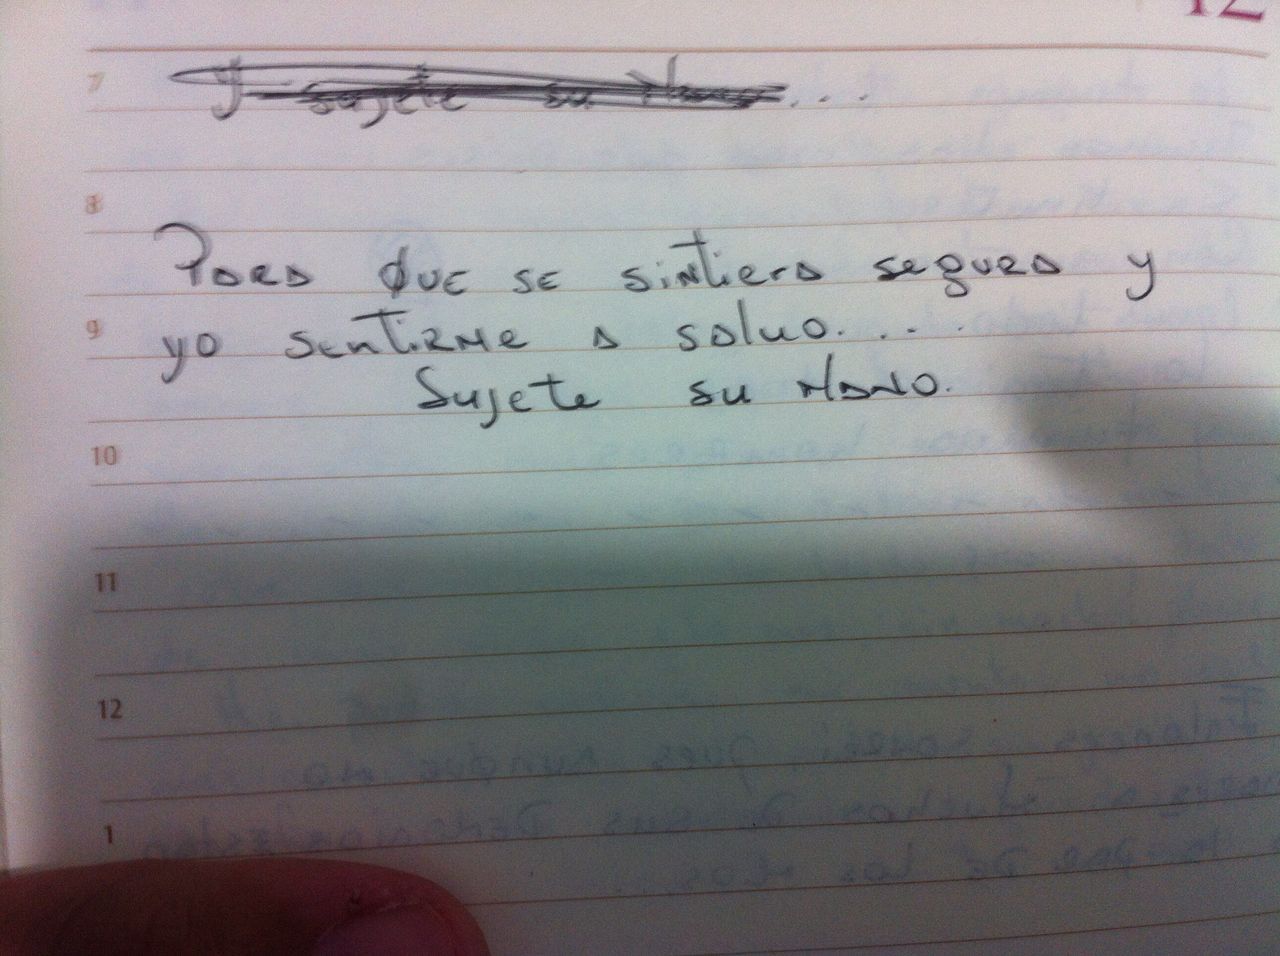 12
7 Y sujete su Mano...
8
Para que se sintiera segura y
9 yo sentirme a salvo....
Sujete su Mano.
10
11
12
1